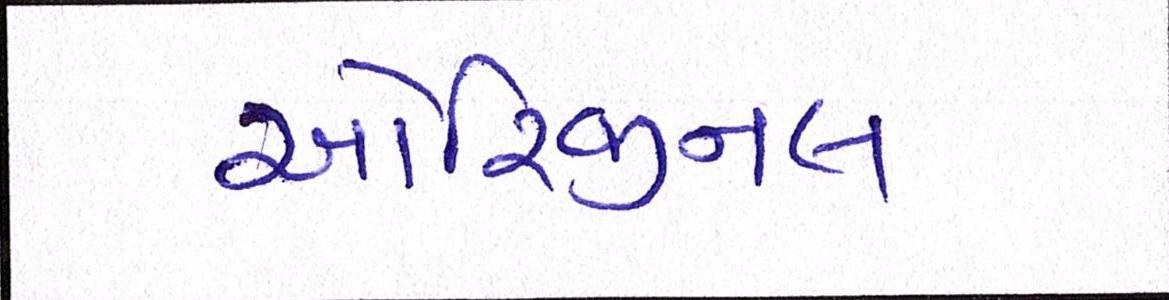 ઓરિજીનલ